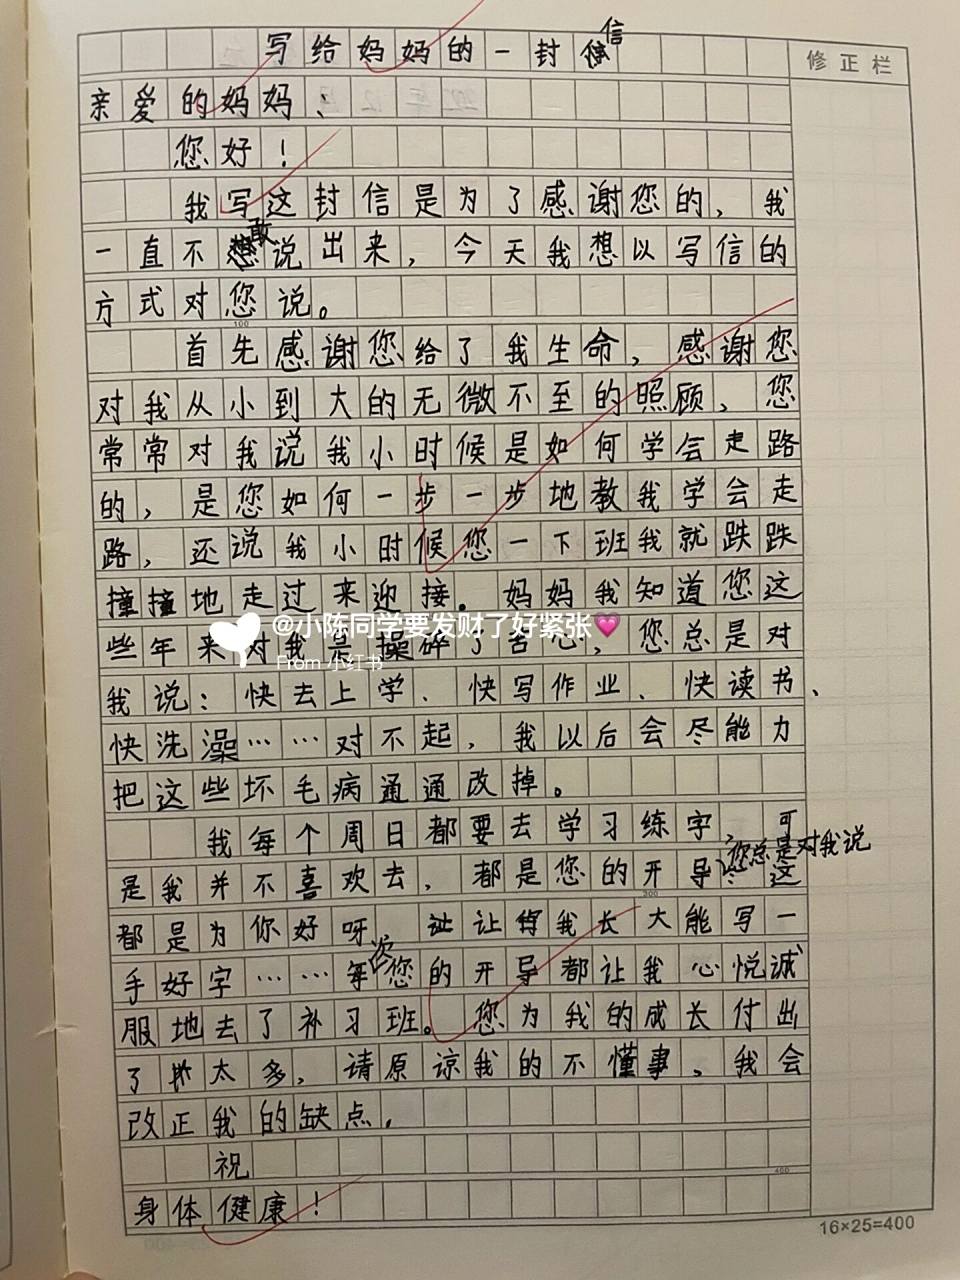 写给妈妈的一封信
修正栏
亲爱的妈妈：
您好！
我写这封信是为了感谢您的，我
一直不敢说出来，今天我想以写信的
方式对您说。
100
首先感谢您给了我生命，感谢您
对我从小到大的无微不至的照顾、您
常常对我说我小时候是如何学会走路
的，是您如何一步一步地教我学会走
路，还说我小时候您一下班我就跌跌
撞撞地走过来迎接。妈妈我知道您这
些年来对我是操碎了苦心，您总是对
@小陈同学要发财了好紧张💗
From 小红书
我说：快去上学、快写作业、快读书、
快洗澡……对不起，我以后会尽能力
把这些坏毛病通通改掉。
我每个周日都要去学习练字，可
是我并不喜欢去，都是您的开导，您总是对我说这
200
都是为你好呀，让我长大能写一
手好字……您的开导都让我心悦诚
服地去了补习班。您为我的成长付出
了太多，请原谅我的不懂事、我会
改正我的缺点。
祝
400
身体健康！
16×25=400